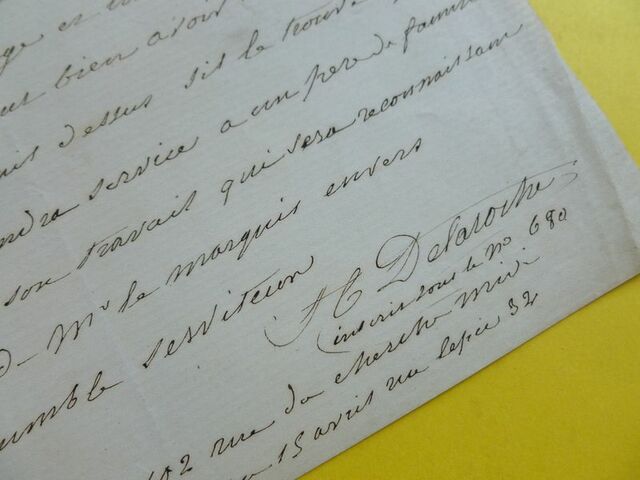 bien avoir
dessus sil le trouve
service a un pere de famille
son travail qui sera reconnaissant
Mr le marquis envers
umble serviteur
H Delaroche
inscrit sous le no 680
42 rue du cherche midi
15 avril rue lepic 32